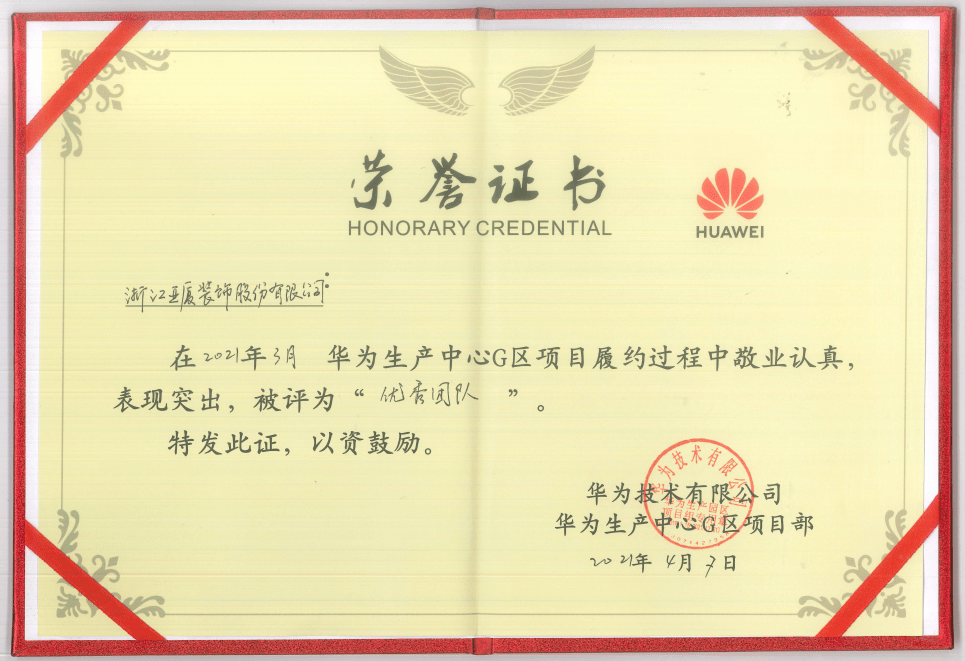 荣誉证书
HONORARY CREDENTIAL
HUAWEI
浙江亚厦装饰股份有限公司:
在2021年3月 华为生产中心G区项目履约过程中敬业认真,
表现突出,被评为“优秀团队”。
特发此证,以资鼓励。
华为技术有限公司
华为技术有限公司
华为生产园区
华为生产中心G区项目部
2021年4月7日